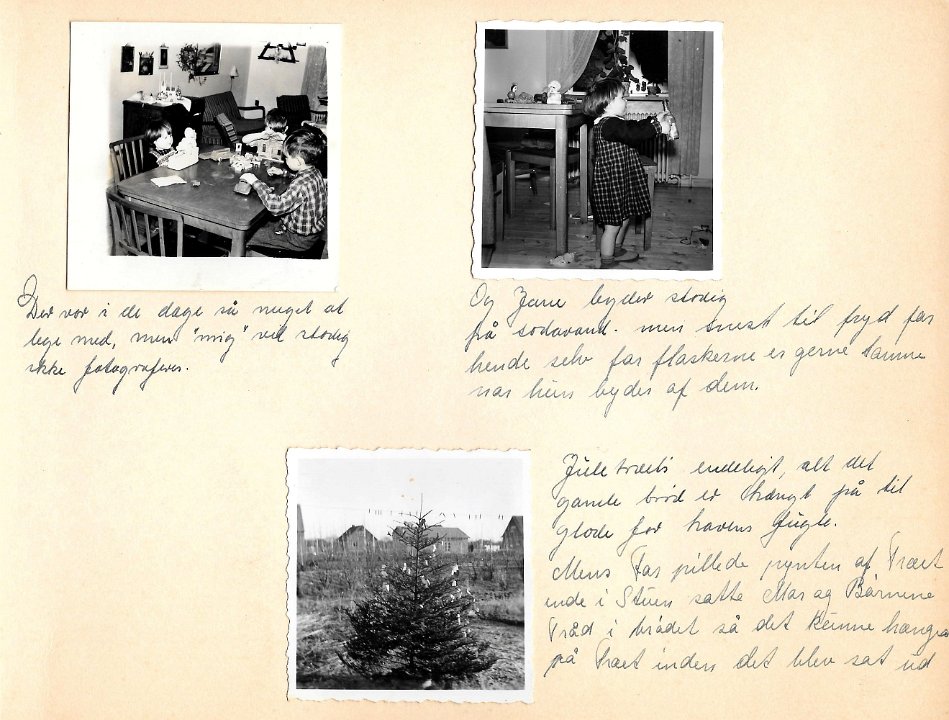 Der var i de dage så meget at
lege med, men "mig" vil stadig
ikke fotograferes.
Og Jane byder stadig
på sodavand. men mest til fryd for
hende selv for flaskerne er gerne tomme
når hun byder af dem.
Juletræets endeligt, alt det
gamle brød er hængt på til
glæde for havens fugle.
Mens Far pillede pynten af Træet
inde i Stuen satte Mor og Börnene
Tråd i brödet så det künne hænges
på Træet inden det blev sat ud